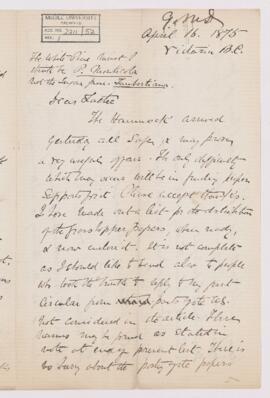 G.M.D
McGILL UNIVERSITY
ARCHIVES
ACC. NO. REF.
April 16. 1875
Victoria B.C.
The White Pine must I
think be P. Monticola
not the Sugar pine Lambertiana.
Dear Father
The Hammock arrived
yesterday all safe & may prove
a very useful affair. The only difficulty
which may occur will be in finding proper
Supports for it. Please accept thanks.
I have made out a list for the distribution
of the Grasshopper Papers, when ready,
& now enclose it. It is not complete
as I should like to send also to people
who took the trouble to reply to my first
Circular from parts
not considered in the article. Their
names may be found as stated in
note at end of present list. There is
no hurry about the papers